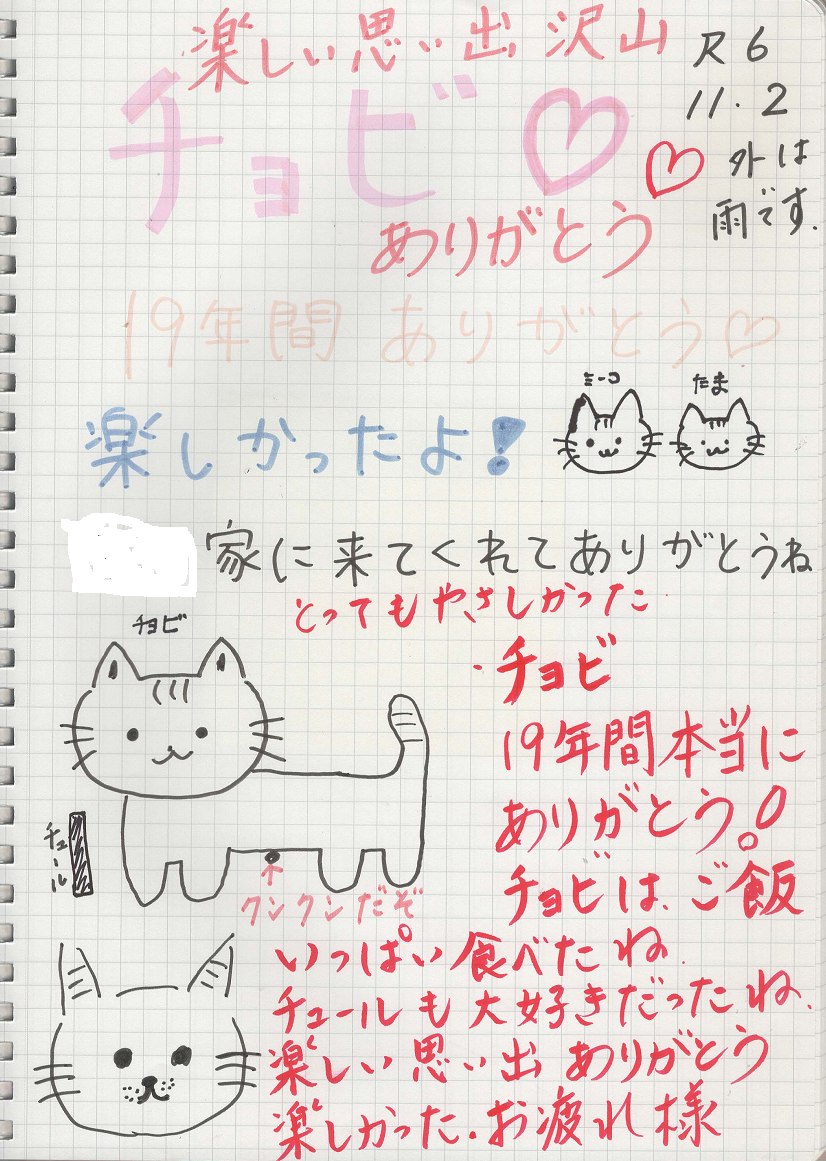 楽しい思い出沢山
R6
11.2
外は
雨です.
チョビ♡
♡
ありがとう
19年間 ありがとう♡
ミーコ
たま
楽しかったよ!
家に来てくれてありがとうね
とってもやさしかった
チョビ
・チョビ
19年間本当に
ありがとう!
チュール
クンクンだぞ
チョビは、ご飯
いっぱい食べたね
チュールも大好きだったね、
楽しい思い出ありがとう
楽しかった.お疲れ様